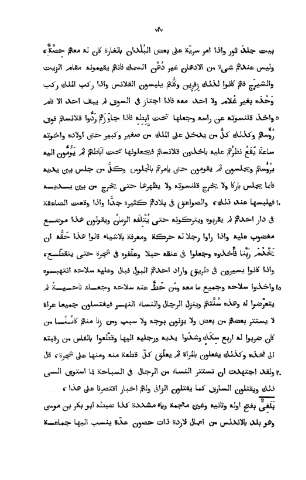 بيت جلد ثور واذا امر سرية على بعض البلدان بالغارة كن له معهم حصّة،
وليس عندهم شىء من الادهان غير دُهْن السمك فانهم يقيمونه مقام الزيت
والشيرج فهم كانوا لذلك زفرين وهم يلبسون القلانس واذا ركب الملك ركب
وَحْدَه بغير غُلام ولا احد معه فاذا اجتاز فى السوق لم يبق احد الا قام
واخذ قلنسوته عن راسه وجعلها تحت اِبْطه فاذا جاوزهم ردّوا قلانسهم فوق
رُؤُسهم وكذلك كل من يدخل على الملك من صغير وكبير حتى اولاده واخوته
ساعة يَقَع نظرهم عليه ياخذون قلانسهم فيجعلونها تحت آباطهم ثم يُومُون اليه
برُؤُسهم ويجلسون ثم يقومون حتى يامرهم بالجلوس وكل من جلس بين يديه
فانما يجلس باركًا ولا يخرج قلنسوته ولا يظهرها حتى يخرج من بين يديه
فيلبسها عند ذلك، والصواعق فى بلادهم كثيرة جدًّا واذا وقعت الصاعقة
فى دار احدهم لم يقربوه ويتركونه حتى يُتْلِفَه الزمنُ ويقولون هذا موضع
مغضوب عليه واذا راوا رجلا له حركة ومعرفة بالاشياء قالوا هذا حَقُّه ان
يَخْدُمَ رَبَّنا فأخذوه وجعلوا فى عنقه حبلا وعلّقوه فى شجرة حتى يتقطّع،
واذا كانوا يسيرون فى طريق واراد احدهم البول فبال وعليه سلاحه انتهبوه
واخذوا سلاحه وجميع ما معه ومن حَطَّ عنه سلاحه وجعله ناحية لم
يتعرّضوا له وهذه سُنّتهم وينزل الرجال والنساء النهر فيغتسلون جميعا عراة
لا يستتر بعضهم من بعض ولا يزنون بوجه ولا سبب ومن زنا منهم كائنًا من
كان ضربوا له اربع سكك وشدّوا يديه ورجليه اليها وقطّعوا بالفأس من رقبته
الى فخذيه وكذلك يفعلون بالمرأة ثم يعلّق كلّ قطعة منه ومنها على شجرة، قال
ولقد اجتهدت ان تستتر النساء من الرجال فى السباحة فما استوى لى
ذلك ويقتلون السارق كما يقتلون الزانى ولهم اخبار اقتصرنا على هذا،
بَلْغى بفتح اوله وثانيه وغين معجمة وياء مشددة كذا ضبطه ابو بكر بن موسى
وهو بلد بالاندلس من اعمال لاردة ذات حصون عدّة ينسب اليها جماعة